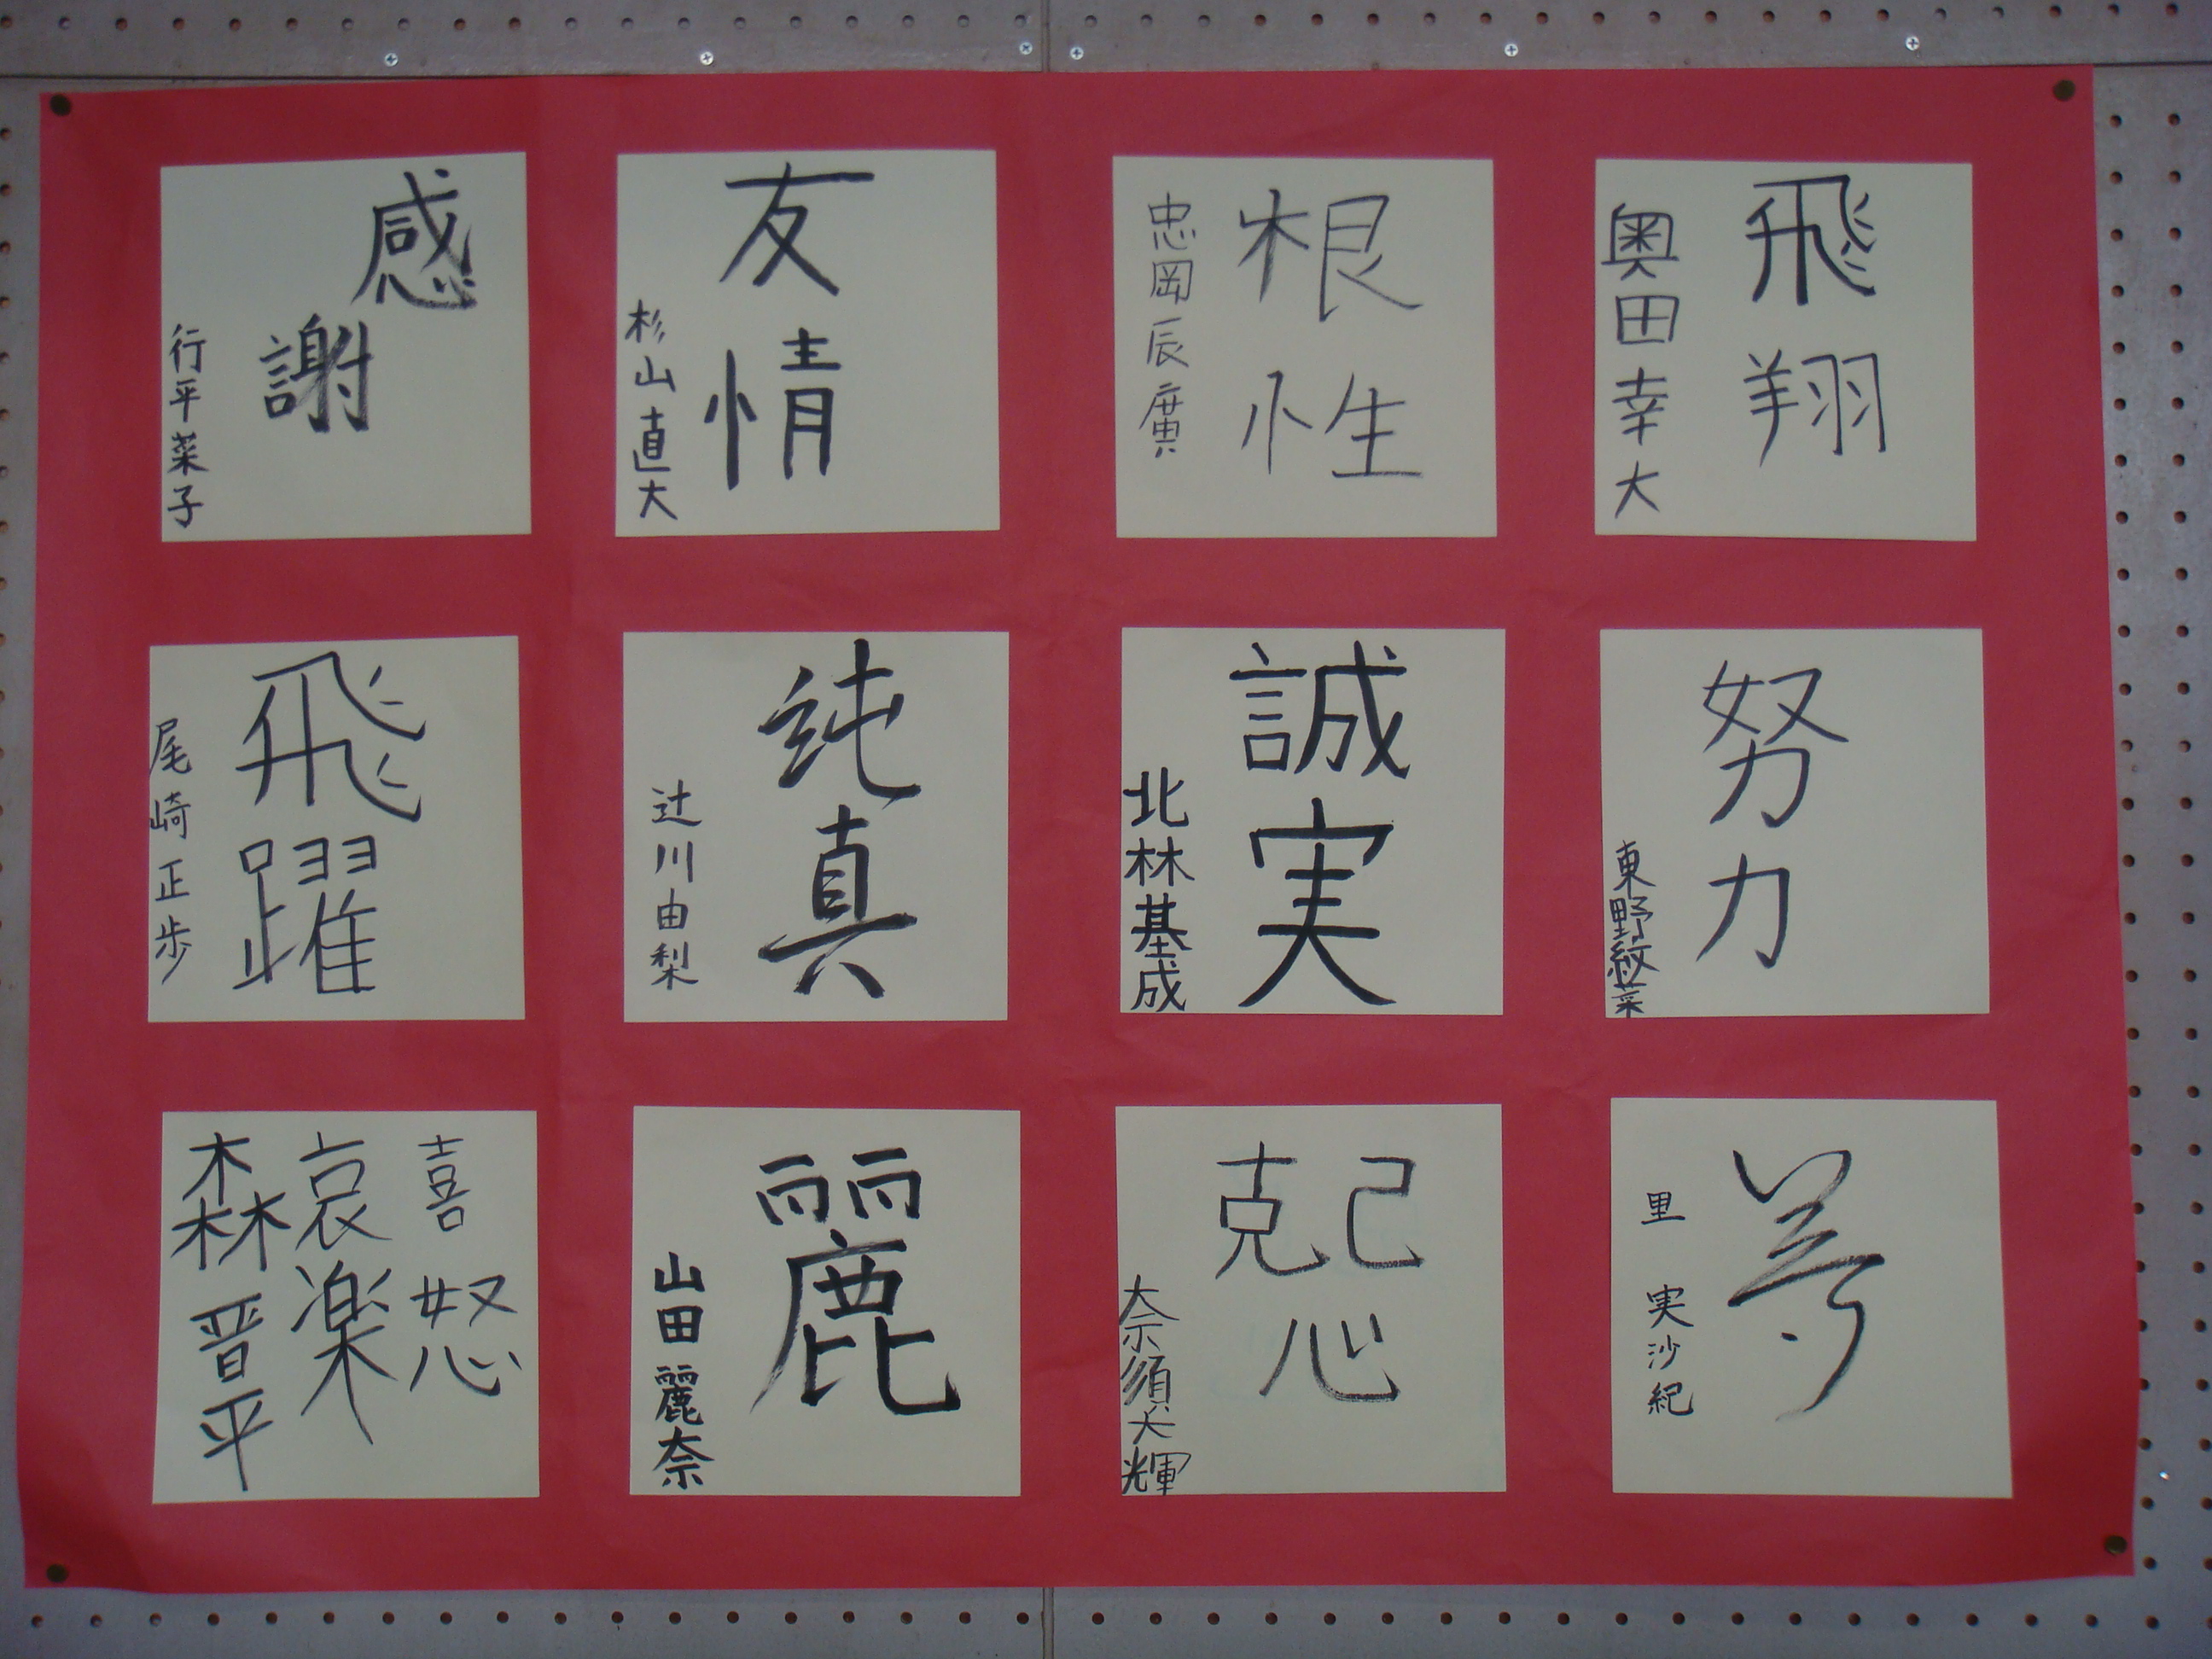 飛翔
奥田幸大
根性
忠岡辰廣
友情
杉山直大
感謝
行平菜子
努力
東野紋菜
誠実
北林基成
純真
辻川由梨
飛躍
尾崎正歩
夢
里実沙紀
克己
心
奈須 輝
麗
山田麗奈
喜怒
哀楽
森晋平